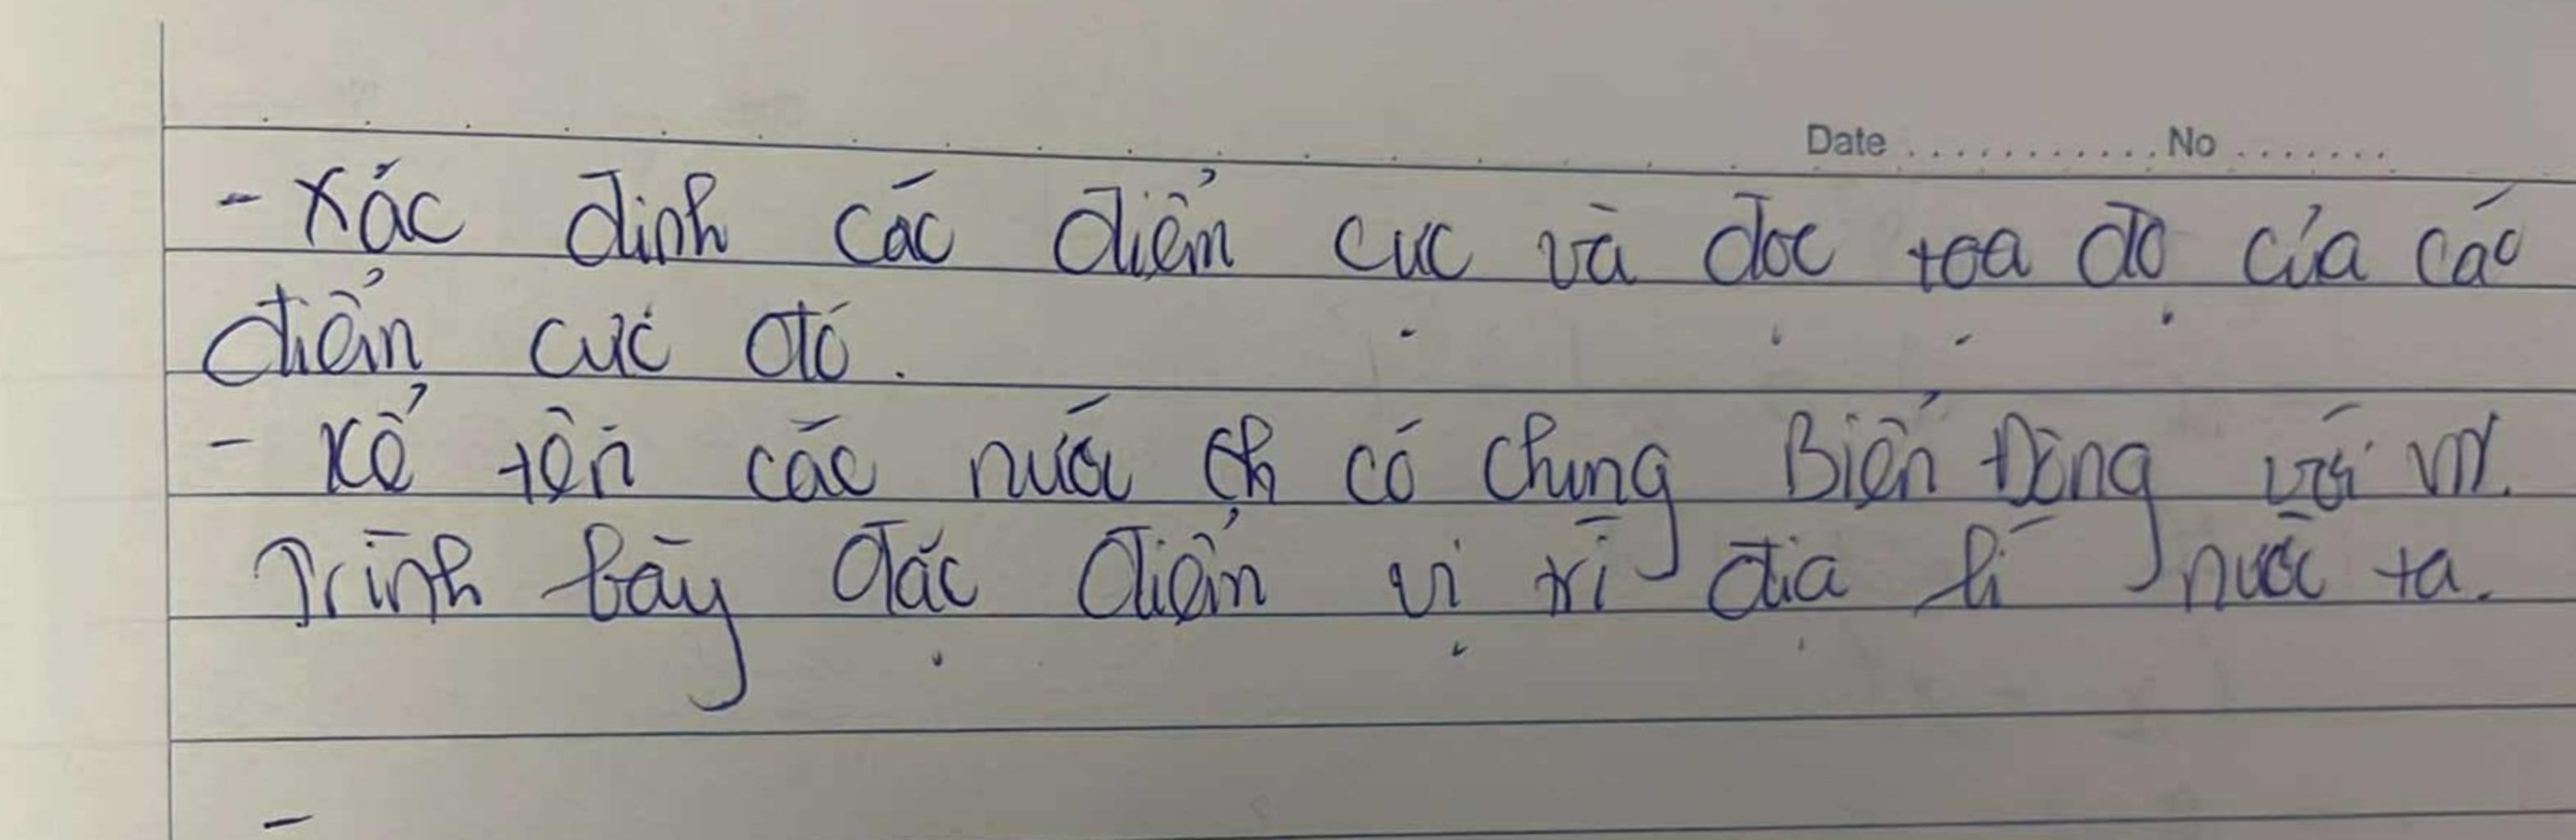 Date ............ No .......
- Xác định các điểm cực và đọc tọa độ của các
điểm cực đó.
- Kể tên các nước ch có chung Biển Đông với VN.
Trình bày đặc điểm vị trí địa lí nước ta.
-